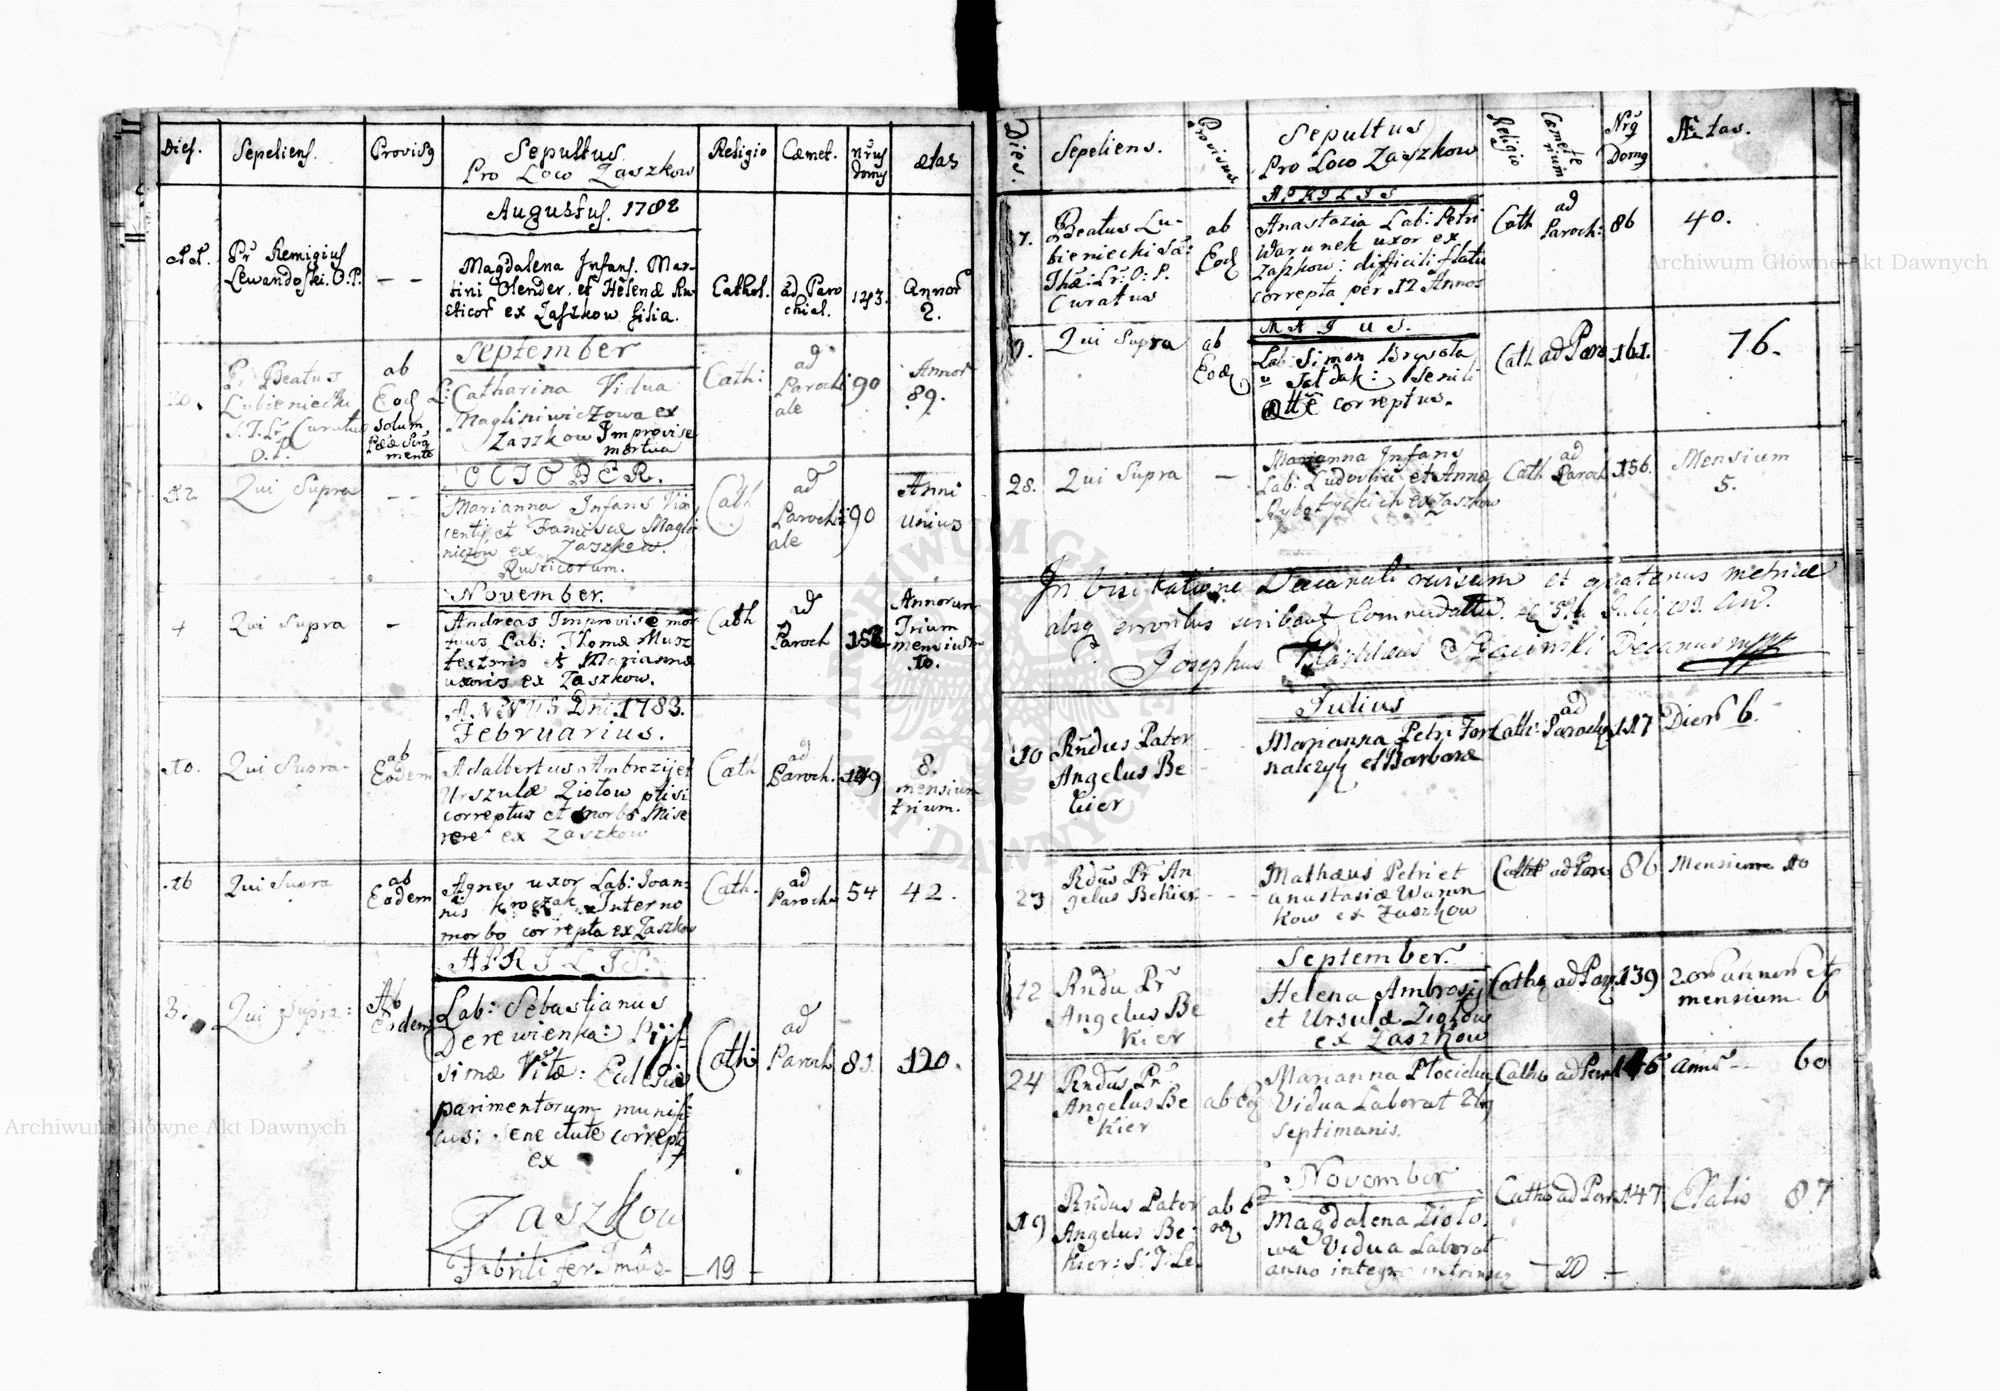 Dies.
Sepeliens.
Provisq
Sepultus
Pro Loco Zaszkow
Religio
Cæmet.
Nrus
Domus
ætas
Augustus. 1782
Pr Remigius
Lewandoski. O.P.
- -
Magdalena Infans. Mar-
tini Olender, et Helenæ Ru-
sticor ex Zaszkow filia.
Cathol.
ad Paro
chial.
143.
Annor
2.
September
20.
Pr Beatus
Lubieniecki
S.T.Lr Curatus
O.P.
ab
Eod
solum
L: Catharina Vidua
Magliniwiczowa ex
Zaszkow Improvise
mortua
Cath:
ad
Parochi
ale
90
Annor
89.
OCTOBER.
12.
Qui Supra
- -
Marianna Infans Vin
centij et Francisæ Magli
niczow ex Zaszkow.
Rusticorum.
Cath
ad
Parochi
ale
90
Anni
Unius
November.
4
Qui Supra
-
Andreas Improvise mor
tuus Lab: Thomæ Musz
textoris et Mariannæ
uxoris ex Zaszkow.
Cath
ad
Paroch
152
Annorum
Trium
mensium
10.
ANNUS Dni 1783.
Februarius.
10.
Qui Supra
ab
Eodem
Adalbertus Ambrozij et
Urszulæ Ziolow ptisi
correptus et morbo Mise
rere ex Zaszkow
Cath
ad
Paroch.
149
8.
mensium
trium.
16
Qui Supra
ab
Eodem
Agnes uxor Lab: Joan-
nis Kroczak Interno
morbo correpta ex Zaszkow
Cath.
ad
Paroch
54
42.
APRILIS.
3.
Qui Supra:
Ab
Eodem
Lab: Sebastianus
Derewienka: Pijs-
simæ Vitæ: Eclesiæ
parimentorum munifi
cus: Senectute correptq
ex
Zaszkow
Cath:
ad
Paroch
81.
120.
- 19 -
Dies.
Sepeliens.
Provisus
Sepultus
Pro Loco Zaszkow
Religio
Cæmete
rium
Nrq
Domq
Ætas.
APRILIS
7.
Beatus Lu-
bieniecki Sa:
Thæ: Lr: O. P.
Curatus
ab
Eod
Anastazia Lab: Petri
Warunek uxor ex
Zaszkow: difficili flatu
correpta per 12 Annos
Cath
ad
Paroch:
86
40.
MAIUS.
9.
Qui Supra
ab
Eod
Lab: Simon
senili
correptus.
Cath
ad Paro
161.
76.
28.
Qui Supra
-
Marianna Infans
Lab: Ludovici et Annæ
Rybotyckich ex Zaszkow
Cath
ad
Paroch
156.
Mensium
5.
In Visitatione Decanali revisum et quatenus metricæ
absq erroribus scribant Comendattu.
Josephus Decanus mpp
Julius
10
Rndus Pater
Angelus Be
kier
Marianna Petri For
nalczyk et Barbaræ
Cath:
ad
Paroch
117
Dier 6.
23
Rdus Pr An
gelus Bekier
- - -
Mathæus Petri et
anastasiæ Warun
kow ex Zaszkow
Cath
ad Paro
86
Mensium 10
September.
12
Rndu Pr
Angelus Be
kier
Helena Ambrosij
et Ursulæ Ziolow
ex Zaszkow
Cath
ad Par
139
mensium 6
24
Rndus Pr
Angelus Be
kier
ab Eo
Marianna Plocicka
Vidua Laborat
septimanis.
Cath
ad Par
146
Annor - - 60
November
19
Rndus Pater
Angelus Be-
kier: S. T. Le.
ab E
Magdalena Ziolo.
wa Vidua Laborat
anno integro
Cath
ad Par
147
Ætatis 87
- 20 -
Archiwum Główne Akt Dawnych
Archiwum Główne Akt Dawnych
ARCHIWUM GŁÓWNE AKT DAWNYCH